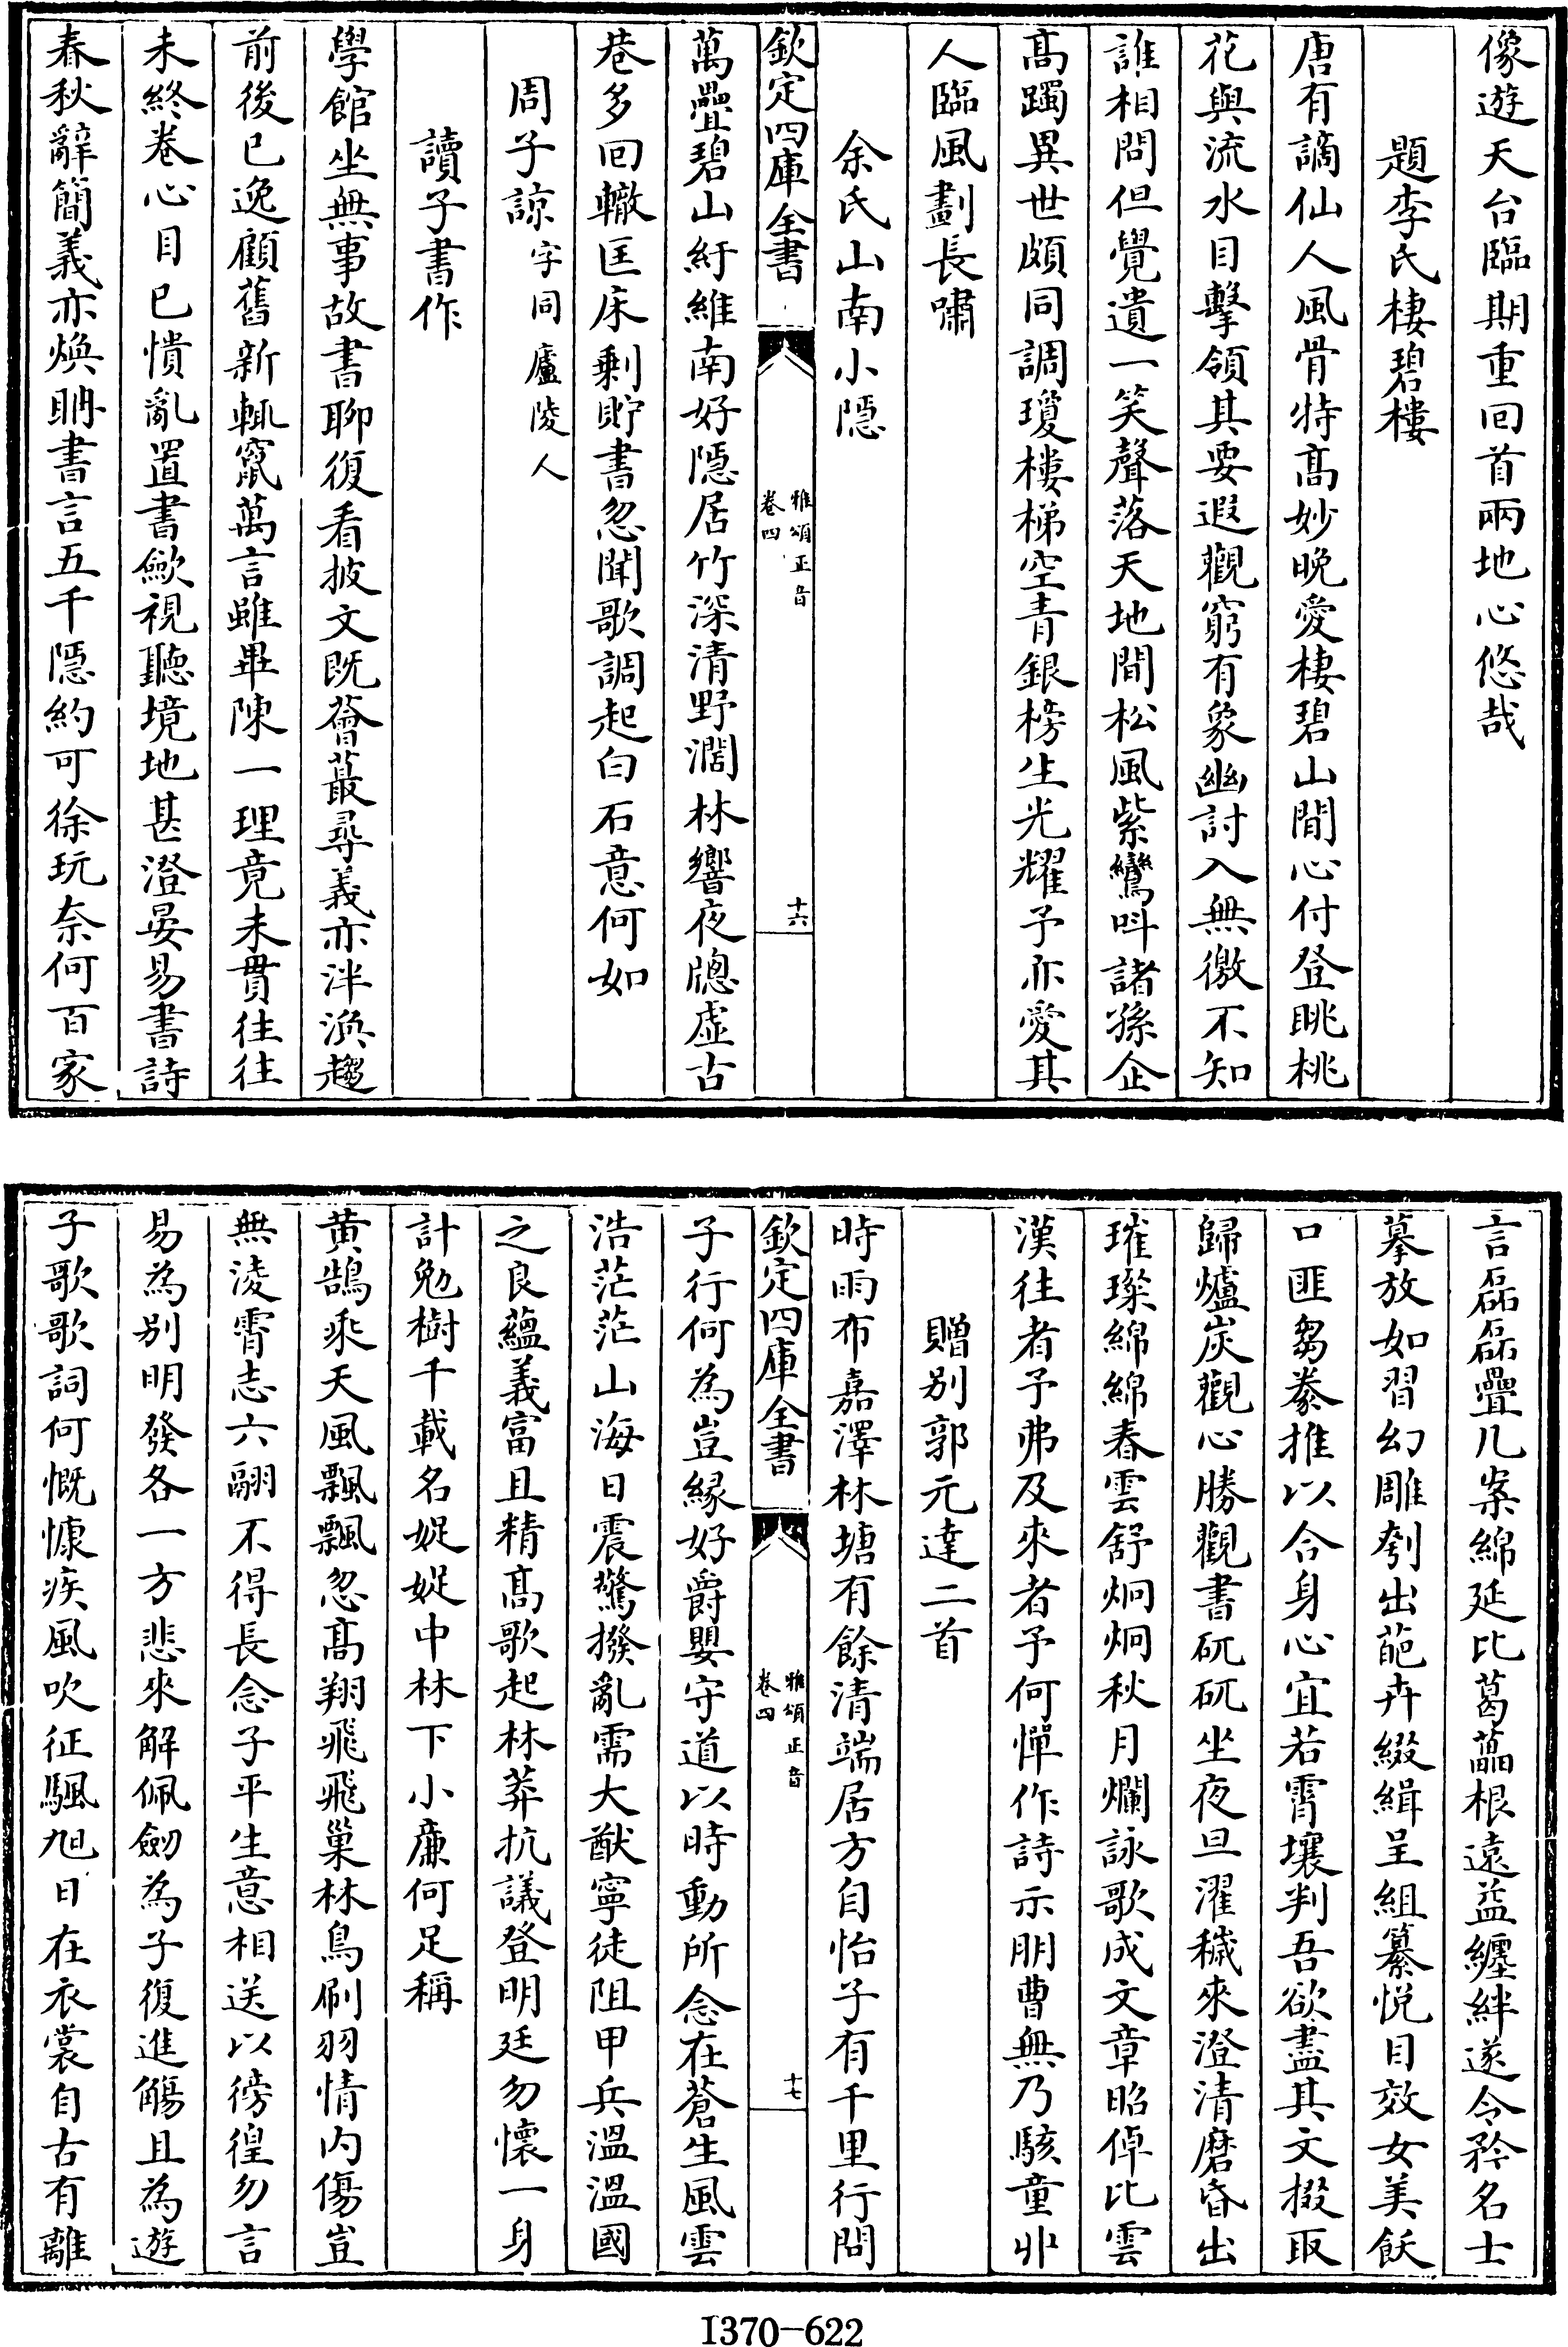 像遊天台臨期重回首兩地心悠哉
題李氏棲碧樓
唐有謫仙人風骨特髙妙晚愛棲碧山間心付登眺桃
花與流水目擊領其要遐觀窮有象幽討入無徼不知
誰相問但覺遺一笑聲落天地間松風紫鸞呌諸孫企
髙躅異世頗同調瓊樓梯空青銀榜生光耀予亦愛其
人臨風劃長嘯
余氏山南小隱
欽定四庫全書
雅頌正音
卷四
十六
萬疊碧山紆維南好隱居竹深清野濶林響夜牕虛古
巷多回轍匡床剩貯書忽聞歌調起白石意何如
周子諒字同廬陵人
讀子書作
學館坐無事故書聊復看披文既薈蕞尋義亦泮渙趨
前後已逸顧舊新輒竄萬言雖畢陳一理竟未貫往往
未終卷心目已憒亂置書歛視聽境地甚澄晏易書詩
春秋辭簡義亦煥眀書言五千隱約可徐玩奈何百家
言磊磊疊几案綿延比葛藟根遠益纏絆遂令矜名士
摹放如習幻雕刳出葩卉綴緝呈組纂悦目效女美飫
口匪芻豢推以合身心宜若霄壤判吾欲盡其文掇取
歸爐炭觀心勝觀書矻矻坐夜旦濯穢來澄清磨昏出
璀璨綿綿春雲舒炯炯秋月爛詠歌成文章昭倬比雲
漢往者予弗及來者予何憚作詩示朋曹無乃駭童丱
贈别郭元達二首
時雨布嘉澤林塘有餘清端居方自怡子有千里行問
欽定四庫全書
雅頌正音
卷四
十七
子行何為豈縁好爵嬰守道以時動所念在蒼生風雲
浩茫茫山海日震驚撥亂需大猷寧徒阻甲兵温温國
之良藴義富且精髙歌起林莽抗議登明廷勿懷一身
計勉樹千載名娖娖中林下小亷何足稱
黄鵠乘天風飄飄忽髙翔飛飛巢林鳥刷羽情内傷豈
無淩霄志六翮不得長念子平生意相送以徬徨勿言
易為别明發各一方悲來解佩劒為子復進觴且為遊
子歌歌詞何慨慷疾風吹征颿旭日在衣裳自古有離
I370—622